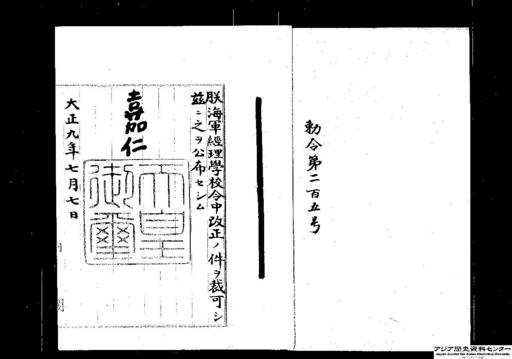 勅令第二百五号
朕海軍經理學校令中改正ノ件ヲ裁可シ
茲ニ之ヲ公布セシム
嘉仁
天皇
御璽
大正九年七月七日
アジア歴史資料センター
Japan Center for Asian Historical Records